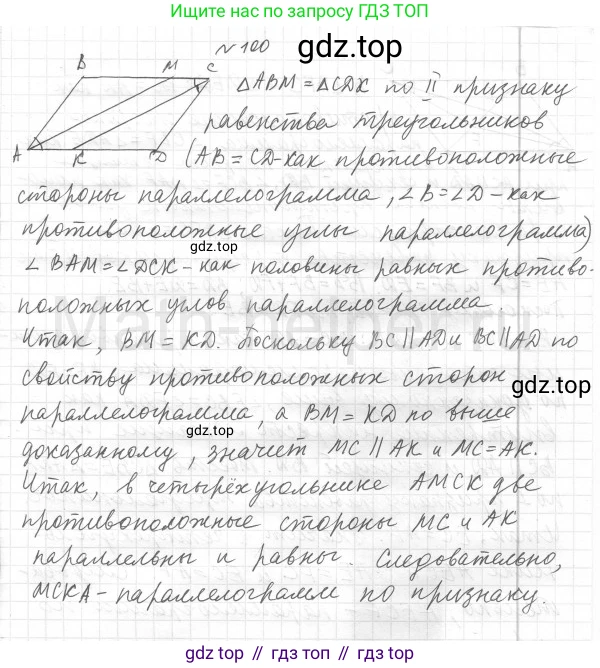 Ищите нас по запросу ГДЗ ТОП
№ 100
gdz.top
B M C
A K D
△ABM = △CDK по II признаку
равенства треугольников
(AB = CD - как противоположные
стороны параллелограмма, ∠B = ∠D - как
противоположные углы параллелограмма)
gdz.top
∠BAM = ∠DCK - как половины равных противо-
положных углов параллелограмма.
Итак, BM = KD. Поскольку BC || AD и BC || AD по
свойству противоположных сторон
gdz.top
параллелограмма, а BM = KD по выше
gdz.top
доказанному, значит MC || AK и MC = AK.
Итак, в четырёхугольнике AMCK две
противоположные стороны MC и AK
параллельны и равны. Следовательно,
MCKA - параллелограмм по признаку.
gdz.top // гдз.топ // гдз топ